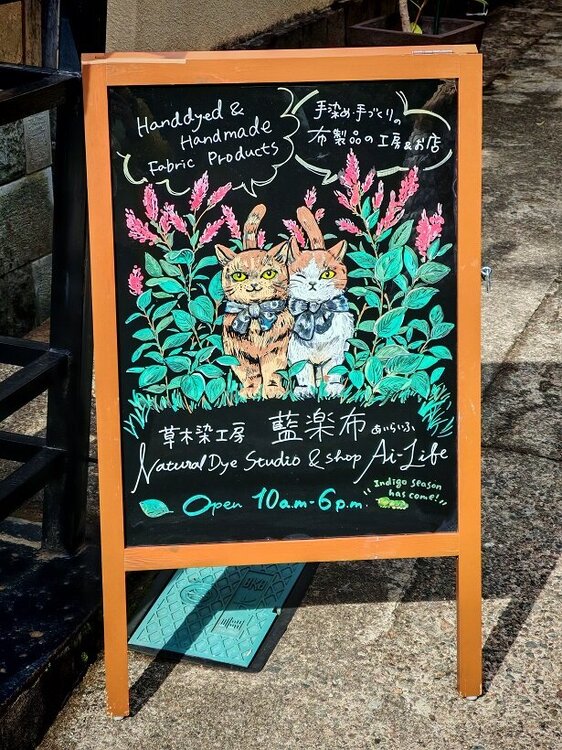 Handdyed &
Handmade
Fabric Products
手染め・手づくりの
布製品の工房&お店
草木染工房 藍楽布 あいらいふ
Natural Dye Studio & Shop Ai-Life
Open 10a.m-6p.m.
"Indigo season
has come!"